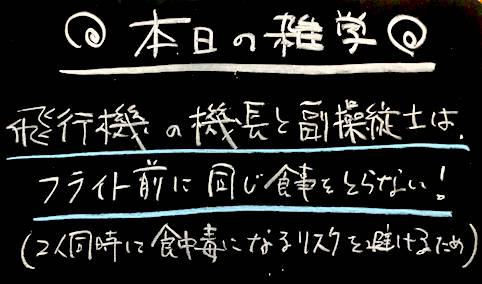 本日の雑学
飛行機の機長と副操縦士は、
フライト前に同じ食事をとらない!
(2人同時に食中毒になるリスクを避けるため)